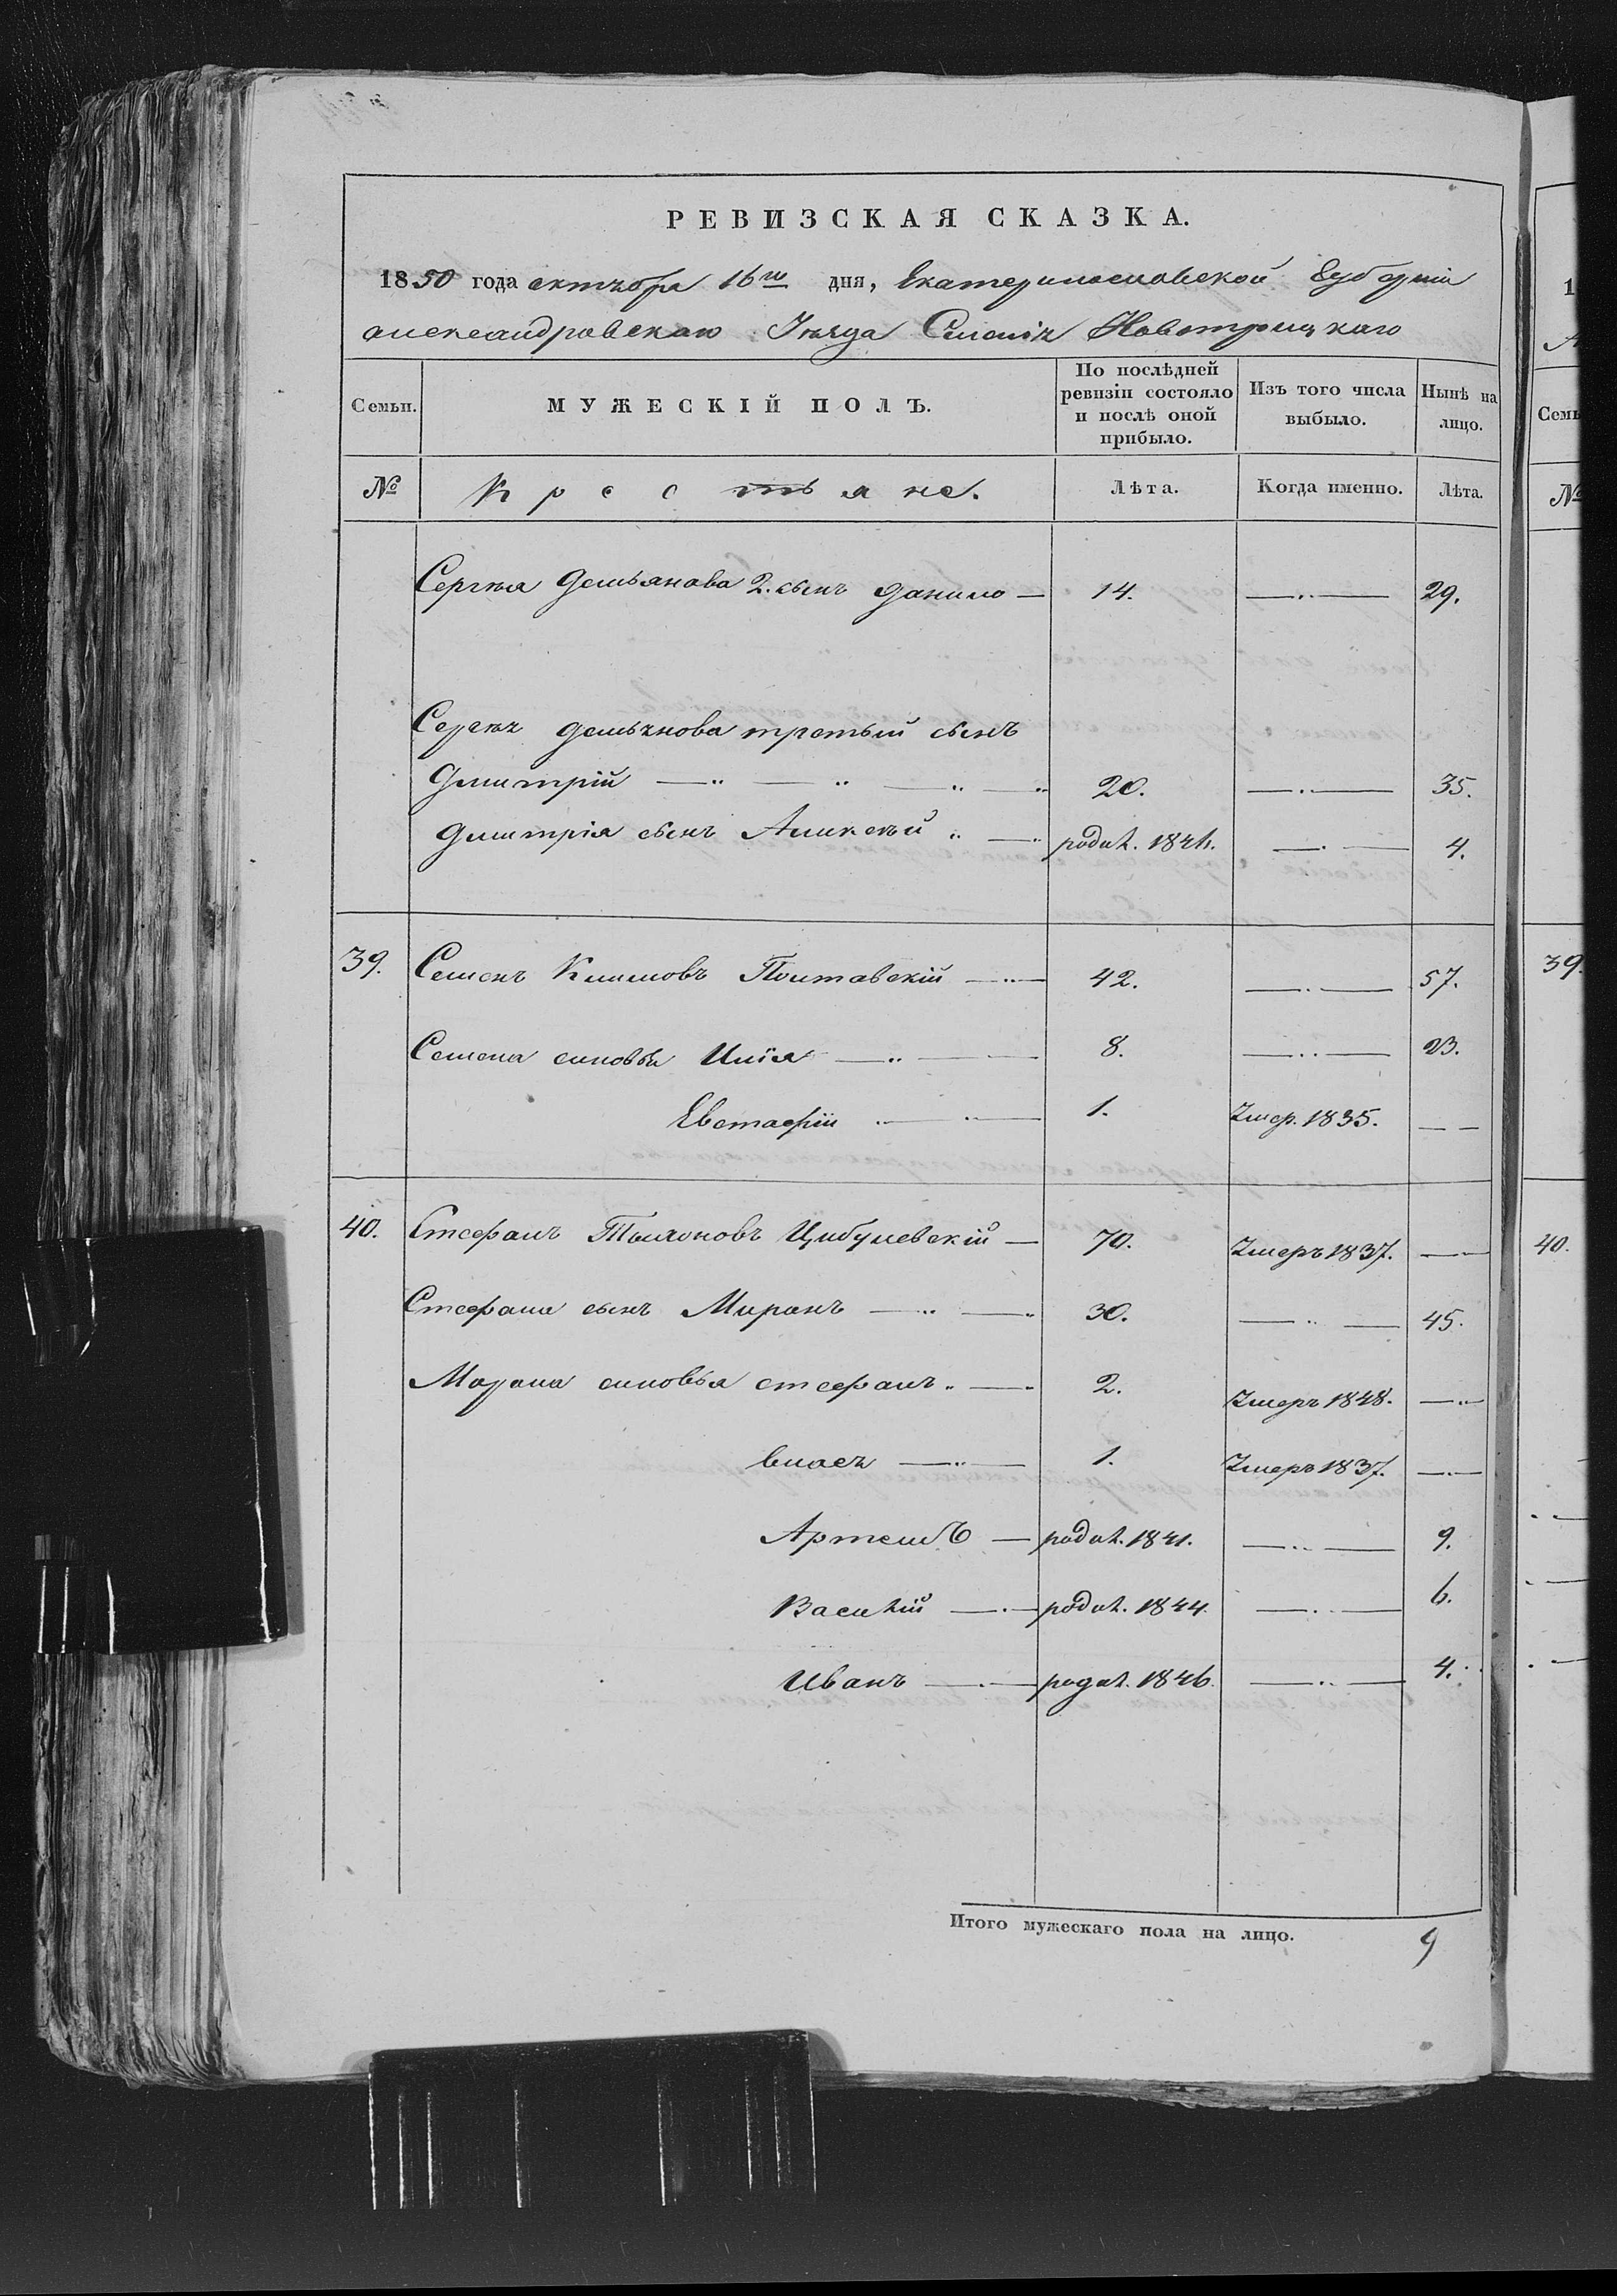 РЕВИЗСКАЯ СКАЗКА.
1850 года октября 16го дня, Екатеринославской Губерніи
Александровскаго Уезда Селенія Новотрицкаго
Семьи. МУЖЕСКІЙ ПОЛЪ. По послѣдней ревизіи состояло и послѣ оной прибыло. Изъ того числа выбыло. Нынѣ на лицо.
№ Крестьяне. Лѣта. Когда именно. Лѣта.
Сергея Демьянова 2. сынъ Данило — 14. —..— 29.
Сергея Демьянова третьій сынъ
Дмитрій —..— 20. —.— 35.
Дмитрія сынъ Аликсѣй ..— родил. 1846. —.— 4.
39. Семенъ Климовъ Полтавскій —..— 42. —.— 57.
Семена синовья Илія —..— 8. —..— 23.
Евстафій ..— 1. Умер. 1835. — —
40. Стефанъ Тихоновъ Цибулевскій — 70. Умеръ 1837. —
Стефана сынъ Миронъ —..— 30. —..— 45.
Мирона синовья стефанъ ..— 2. Умеръ 1848. —..—
власъ —..— 1. Умеръ 1837. —.—
Артемъ — родил. 1841. —..— 9.
Василій —.— родил. 1844. —.— 6.
Иванъ —.— родил. 1846. —..— 4.
Итого мужескаго пола на лицо. 9
1
Семь
№
39.
40.